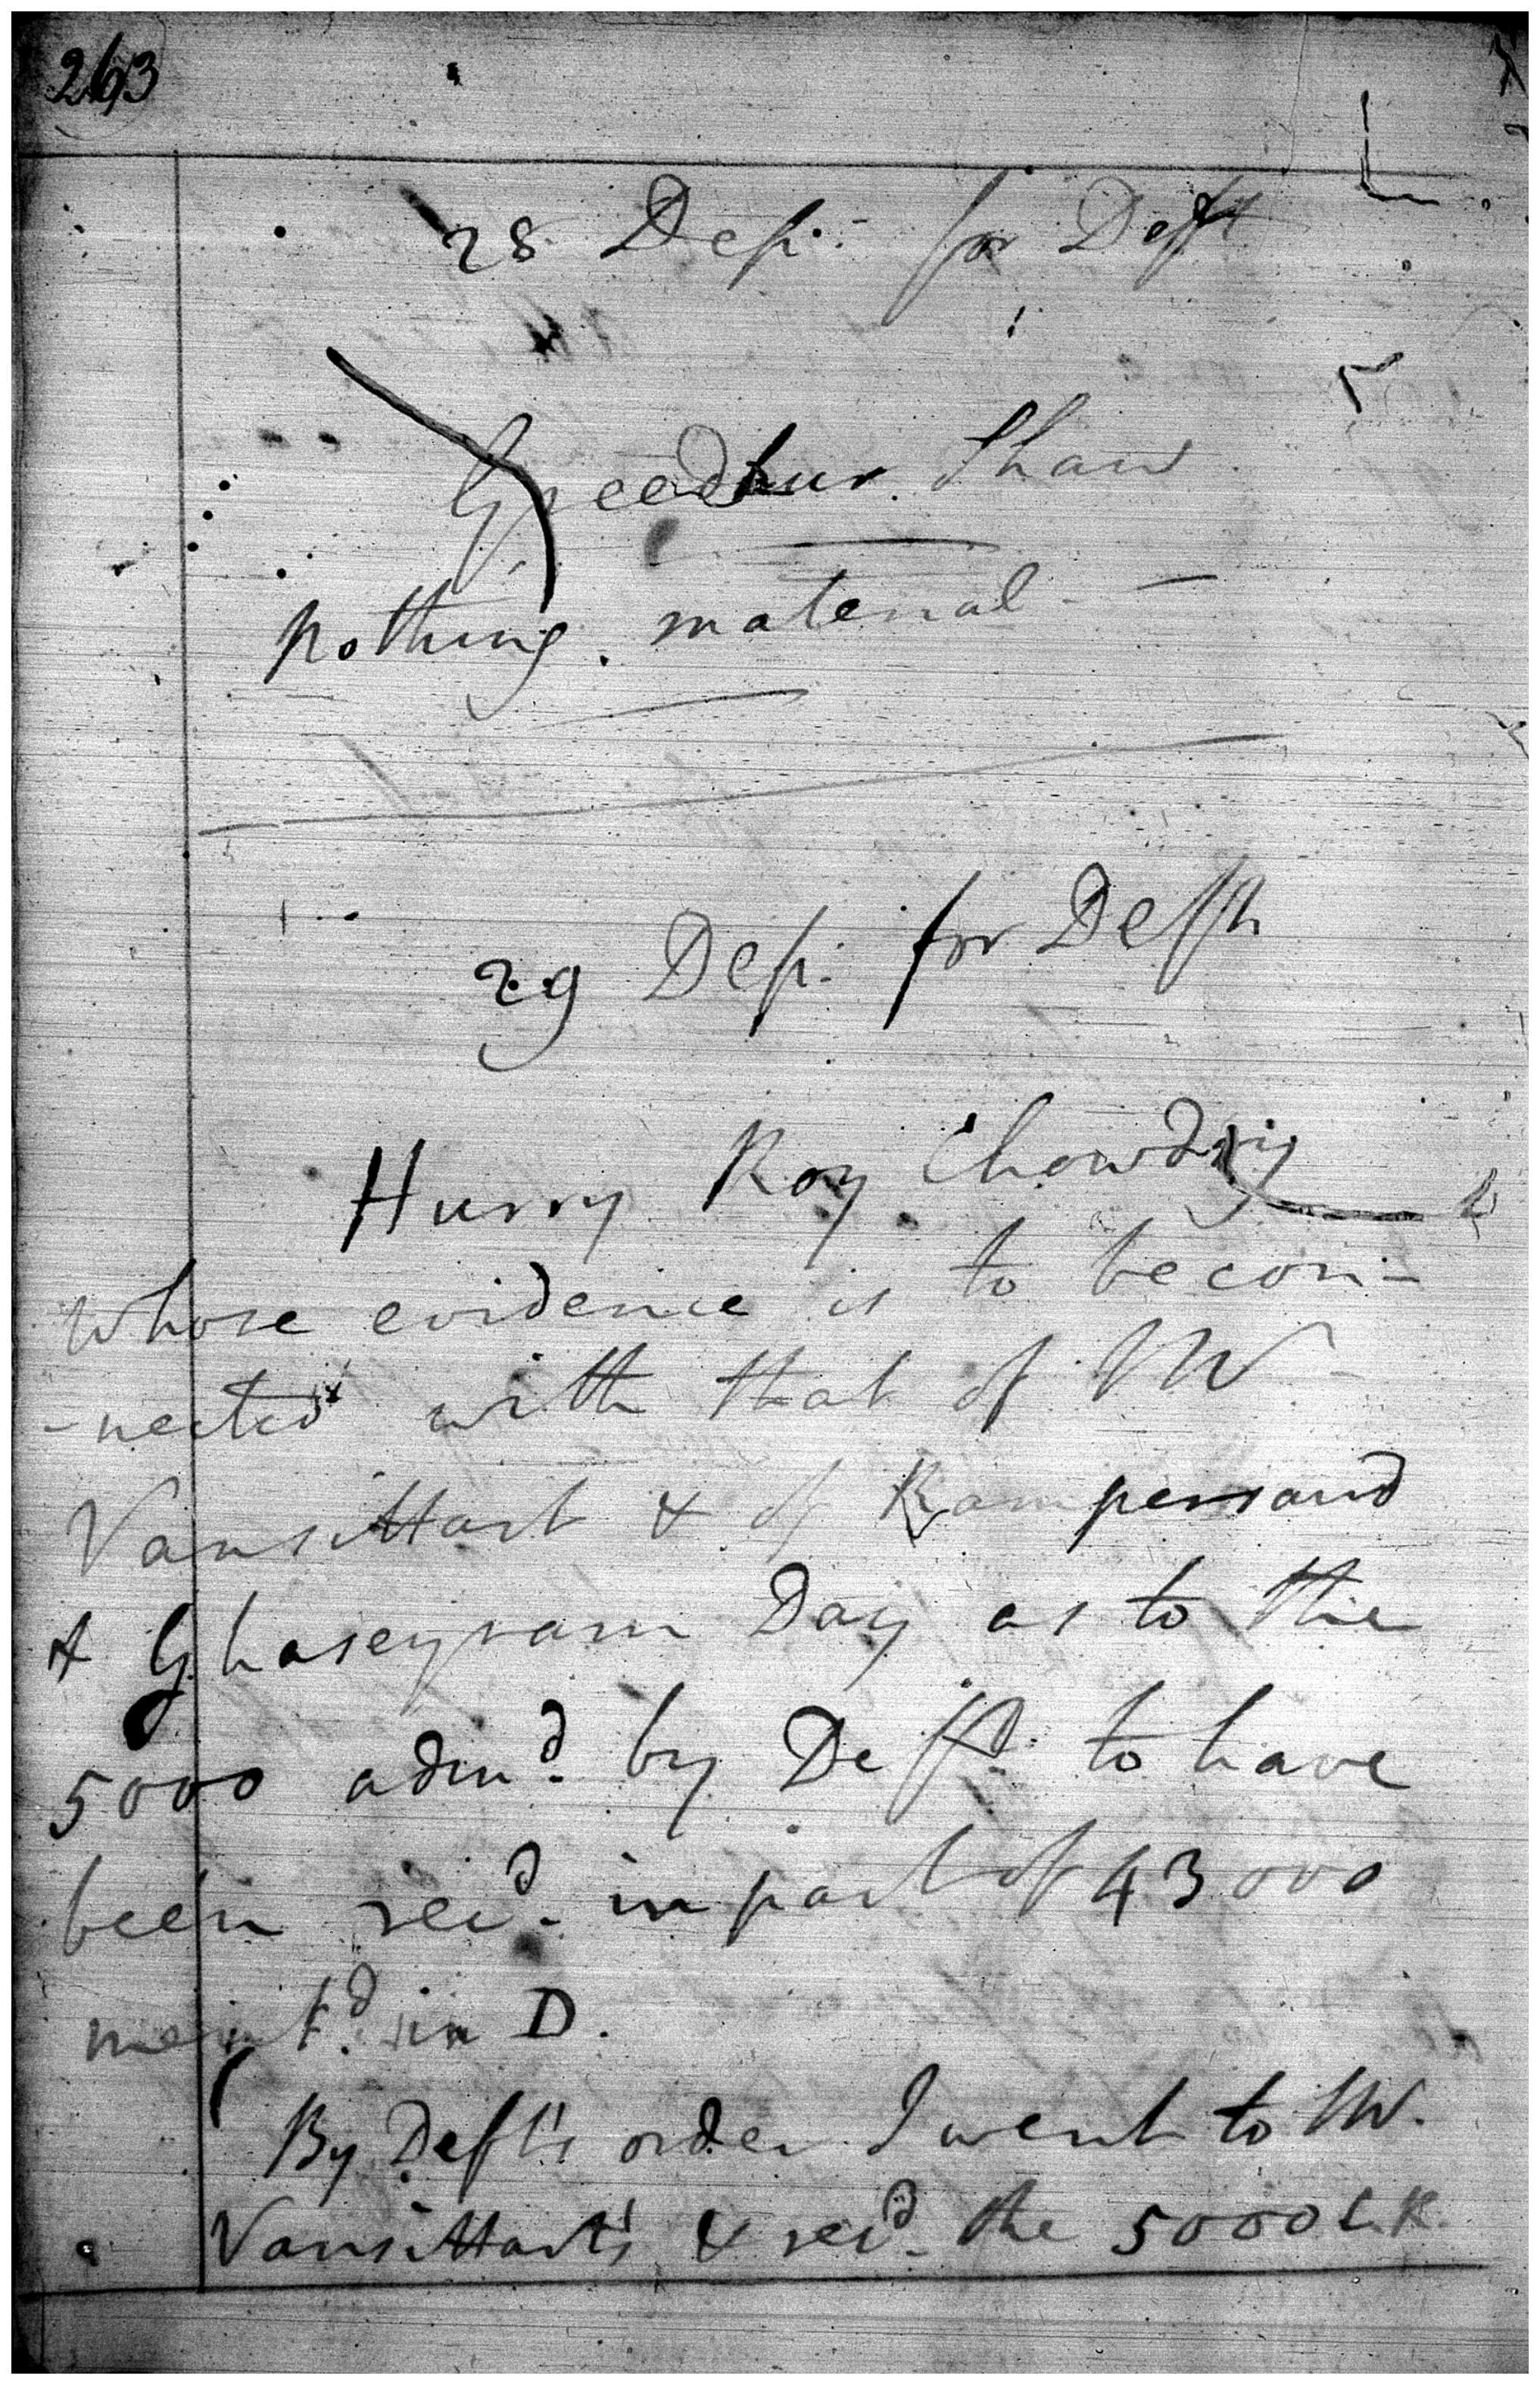 263
28 Dep: for Deft
Greedhur Shaw
nothing material -
29 Dep: for Deft
Hurry Roy Chowdry
whose evidence is to be con-
-nected with that of Mr
Vansittart & of Rampersaud
& Ghaseyram Day as to the
5000 admd. by Deft. to have
been recd. in part of 43000
mentd. in D.
By Deft's order I went to Mr.
Vansittart's & recd. the 5000 C.R.